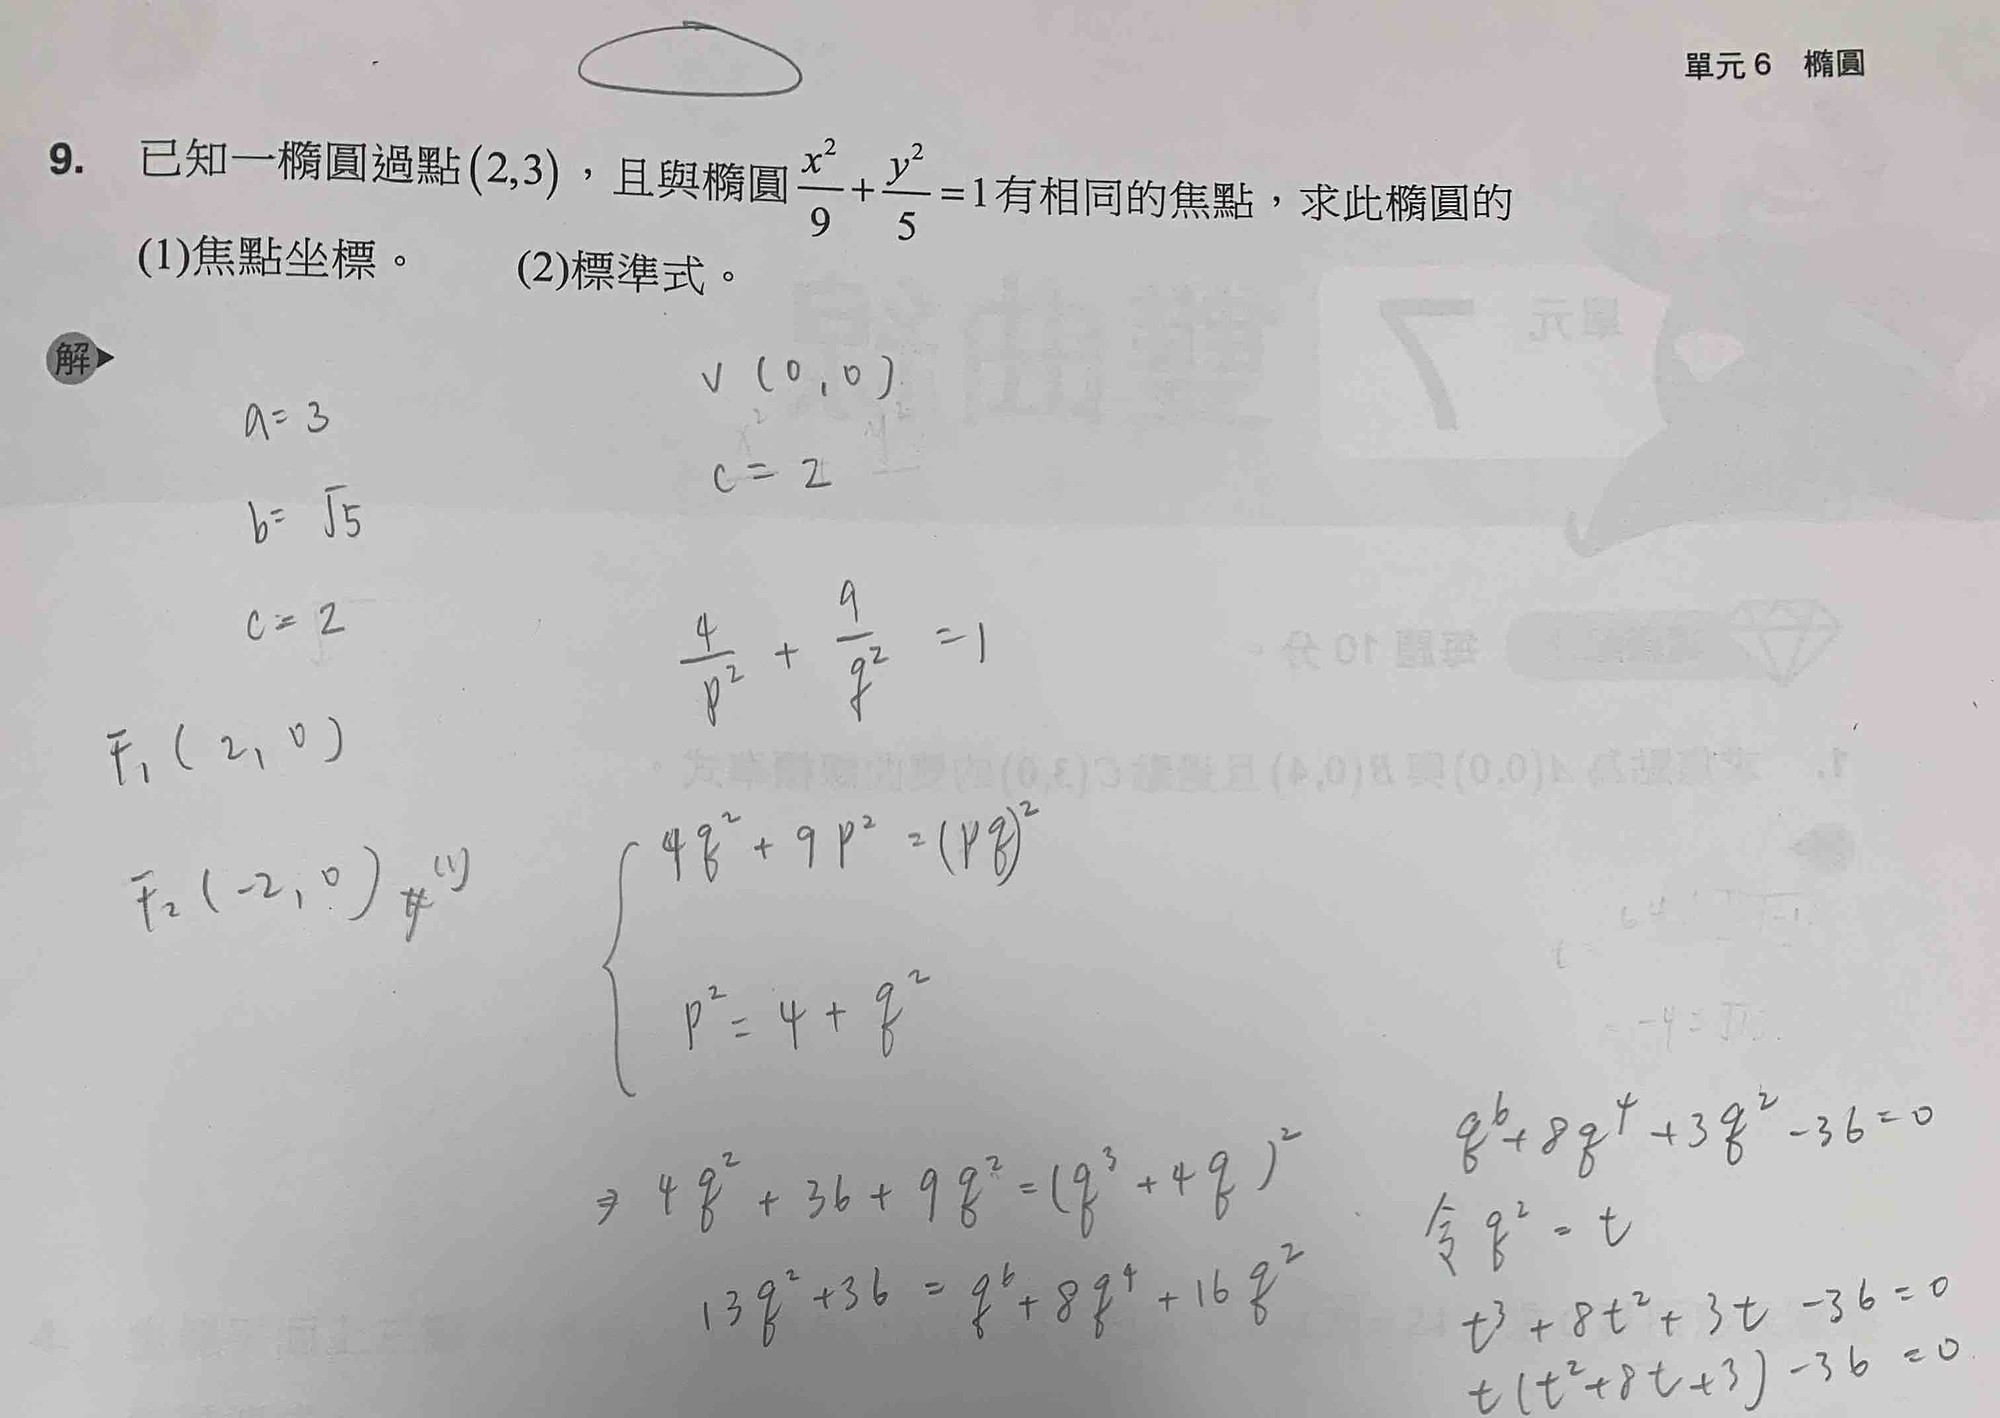 單元 6 橢圓
9. 已知一橢圓過點(2,3)，且與橢圓x²/9+y²/5=1有相同的焦點，求此橢圓的
(1)焦點坐標。 (2)標準式。
解
a=3
b=√5
c=2
F₁(2,0)
F₂(-2,0)#(1)
V(0,0)
c=2
4/p²+9/q²=1
4q²+9p²=(pq)²
p²=4+q²
⇒4q²+36+9q²=(q³+4q)²
13q²+36=q⁶+8q⁴+16q²
q⁶+8q⁴+3q²-36=0
令q²=t
t³+8t²+3t-36=0
t(t²+8t+3)-36=0